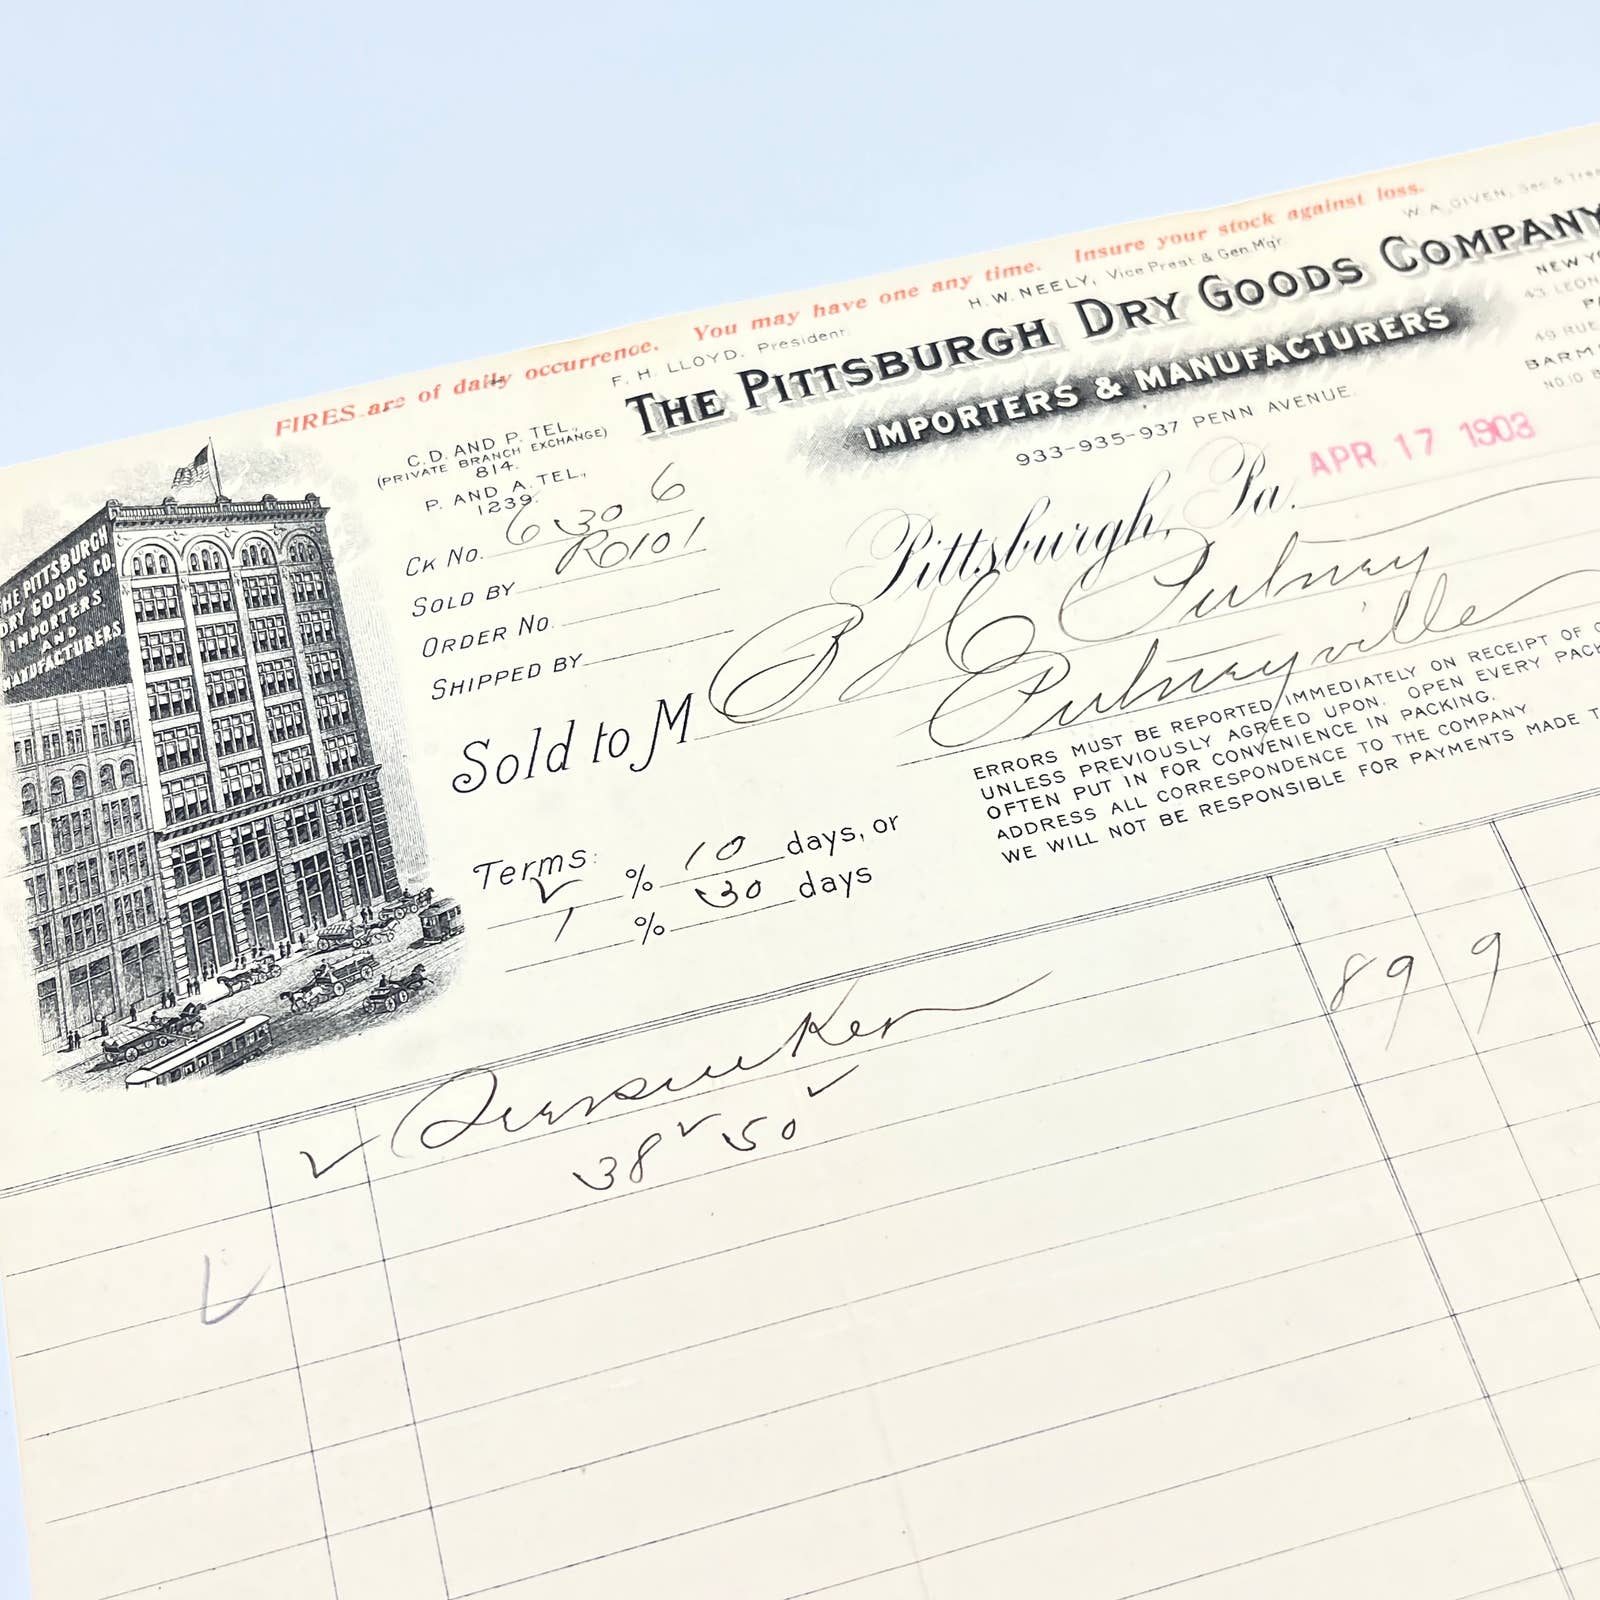 FIRES are of daily occurrence. You may have one any time. Insure your stock against loss.
F. H. LLOYD, President. H. W. NEELY, Vice Prest & Gen. Mgr. W. A. GIVEN, Sec & Trea
THE PITTSBURGH DRY GOODS COMPANY
IMPORTERS & MANUFACTURERS
933-935-937 PENN AVENUE.
NEW YO
43 LEON
PA
49 RUE
BARM
NO. 10
C. D. AND P. TEL.,
(PRIVATE BRANCH EXCHANGE)
814.
P. AND A. TEL.,
1239.
THE PITTSBURGH
DRY GOODS CO.
IMPORTERS
AND
MANUFACTURERS
CK NO. 6306
SOLD BY R0101
ORDER NO.
SHIPPED BY
Pittsburgh, Pa. APR 17 1903
Sold to M Putney
Putneyville
ERRORS MUST BE REPORTED IMMEDIATELY ON RECEIPT OF G
UNLESS PREVIOUSLY AGREED UPON. OPEN EVERY PACK
OFTEN PUT IN FOR CONVENIENCE IN PACKING.
ADDRESS ALL CORRESPONDENCE TO THE COMPANY
WE WILL NOT BE RESPONSIBLE FOR PAYMENTS MADE T
Terms:
% 10 days, or
1 % 30 days
89 9
38 50